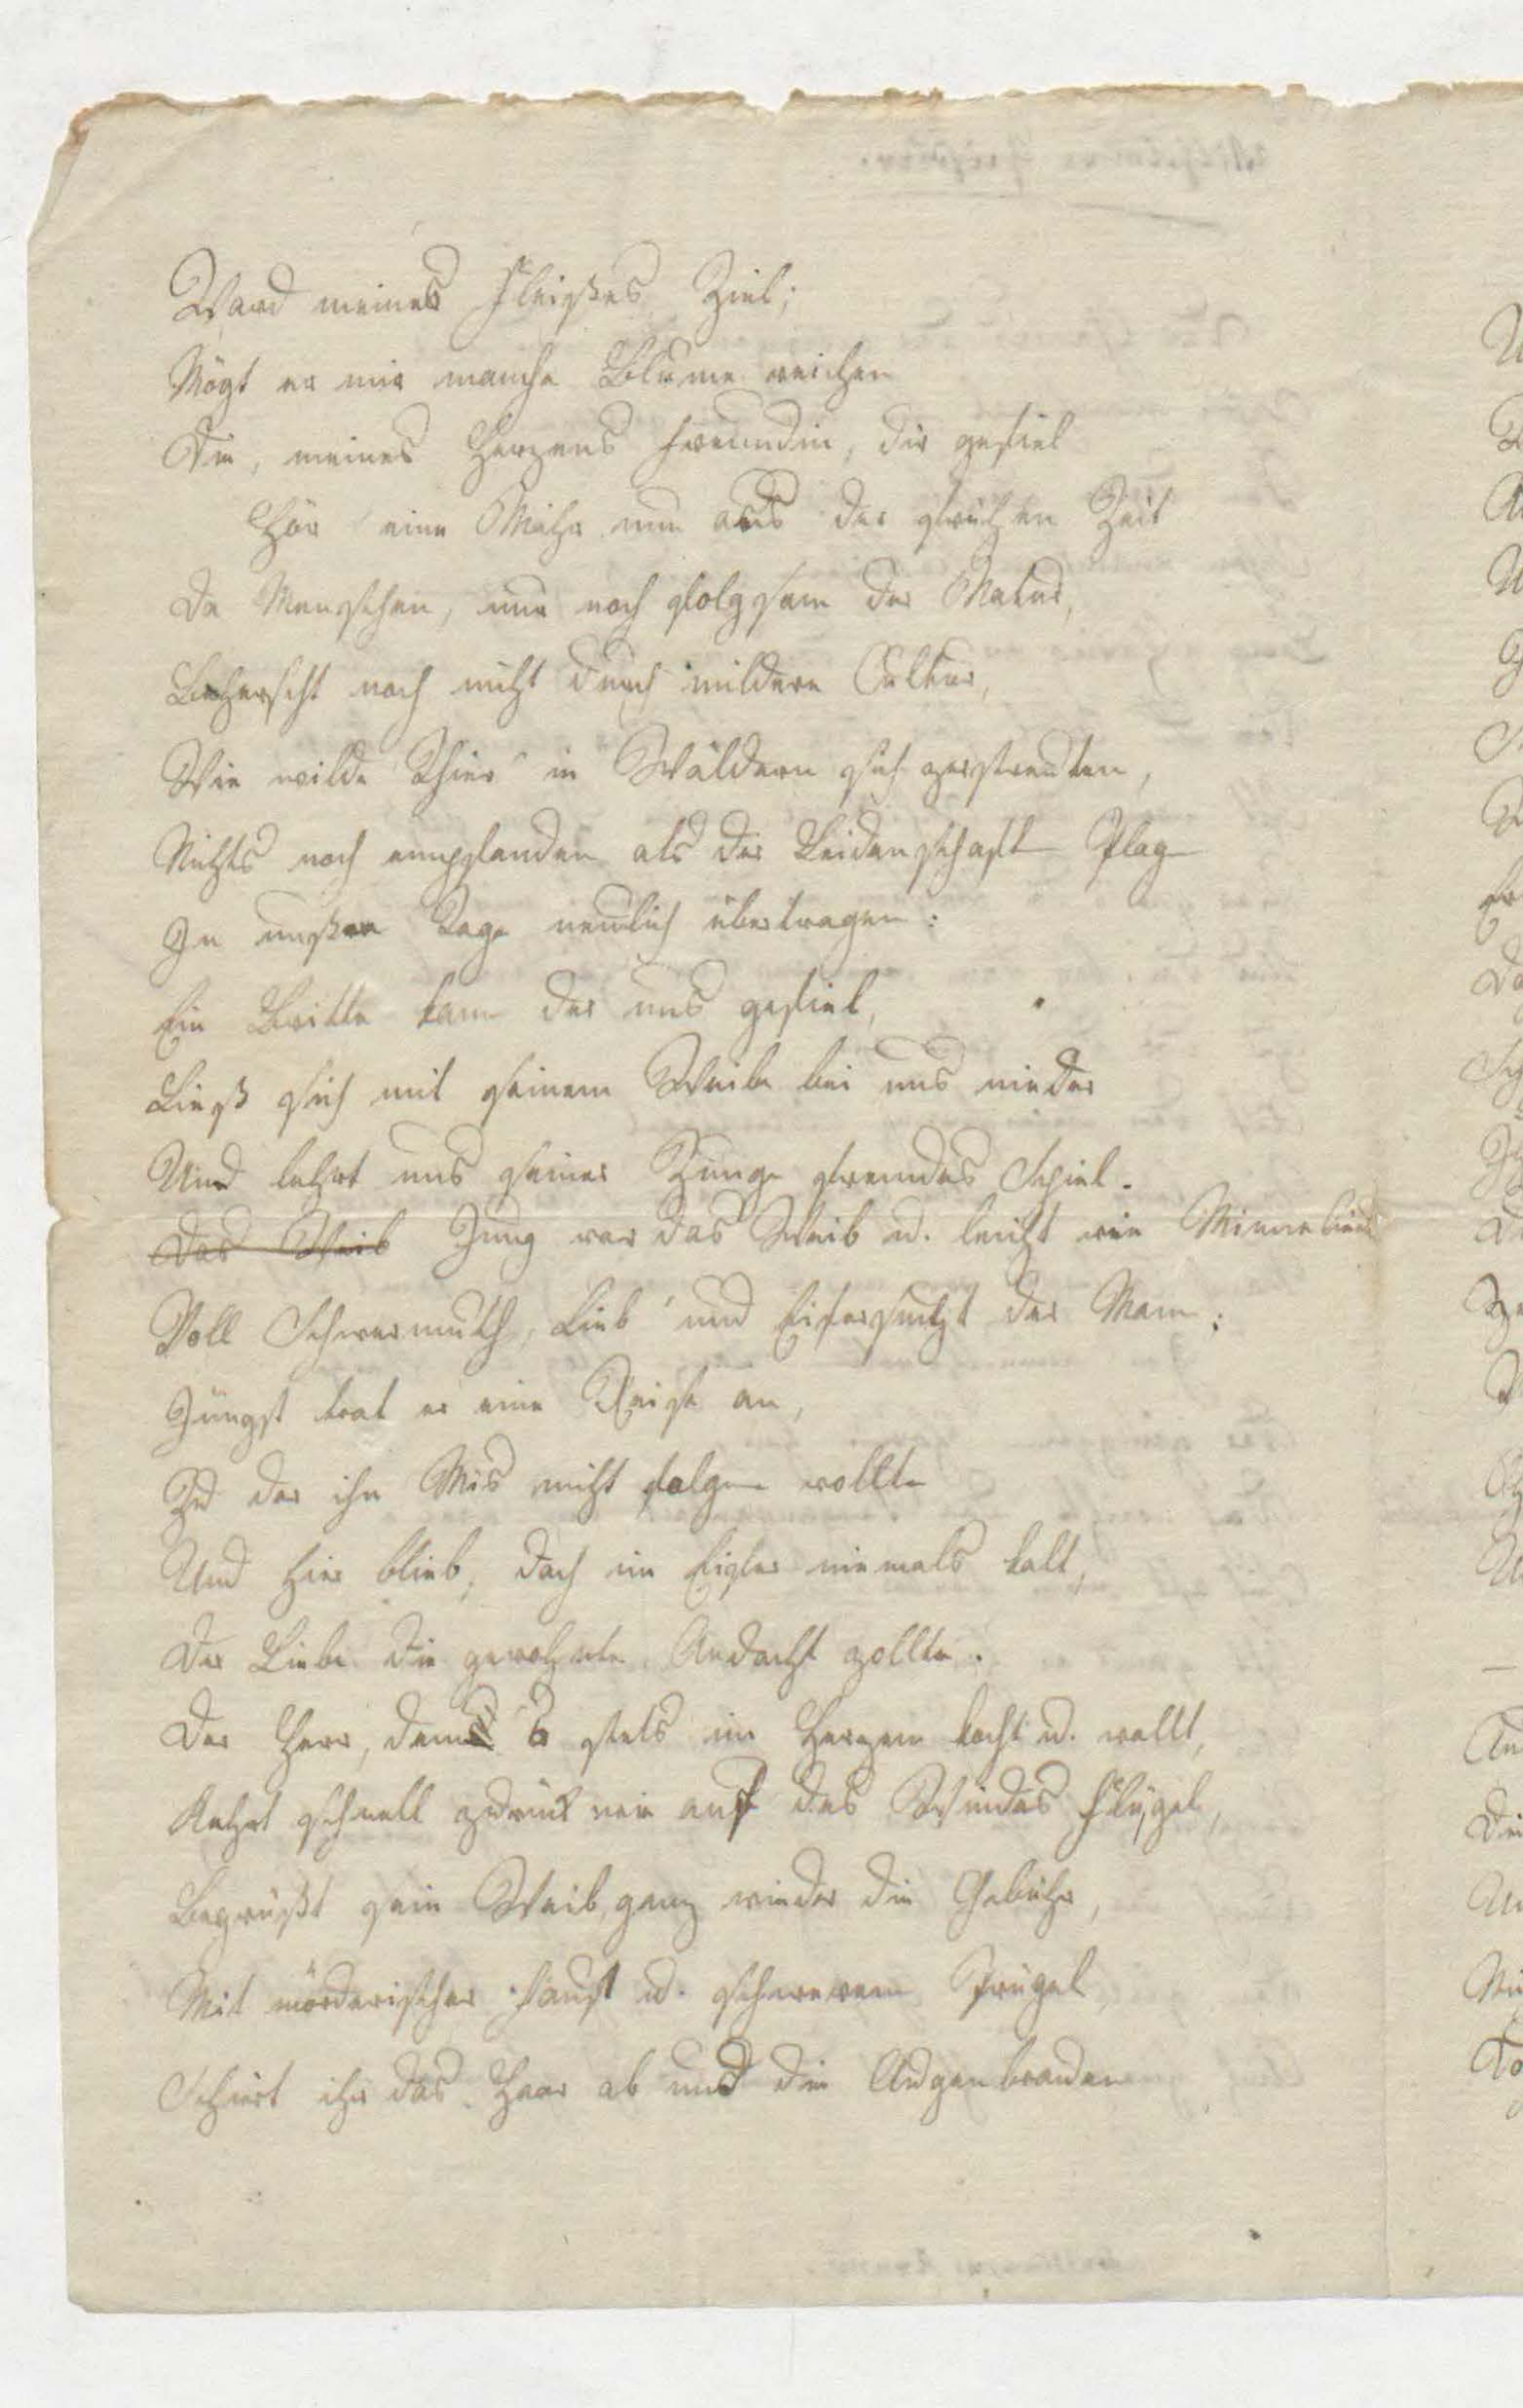 Ward meines Fleißes Ziel;
Mögt er mir manche Blume reichen
Die, meines Herzens Freundin, dir gefiel
Hör eine Mähr nun aus der frühen Zeit
Da Menschen, nur noch folgsam der Natur,
Beherscht noch nicht durch mildere Cultur,
Wie wilde Thier' in Wäldern sich zerstreuten,
Nichts noch empfanden als der Leidenschaft Plag
In unsere Tage neulich übertragen:
Ein Britte kam der uns gefiel,
Ließ sich mit seinem Weibe bei uns nieder
Und lehrt uns seiner Zunge fremdes Spiel.
Das Weib Jung war das Weib u. leicht wie
Voll Schwermuth, Lieb' und Eifersucht der Mann:
Jüngst trat er eine Reise an,
Zu der ihn Mis nicht folgen wollte
Und hier blieb; doch im Eifer niemals kalt,
Der Liebe die gewohnte Andacht zollte.
Der Herr, dem's stets im Herzen kocht u. wallt,
Kehrt schnell zurück wie auf des Windes Flügel,
Begrüßt sein Weib, ganz wieder die Gebühr,
Mit mörderischer Faust u. schwerem Prügel
Schiert ihr das Haar ab und die Augenbraunen